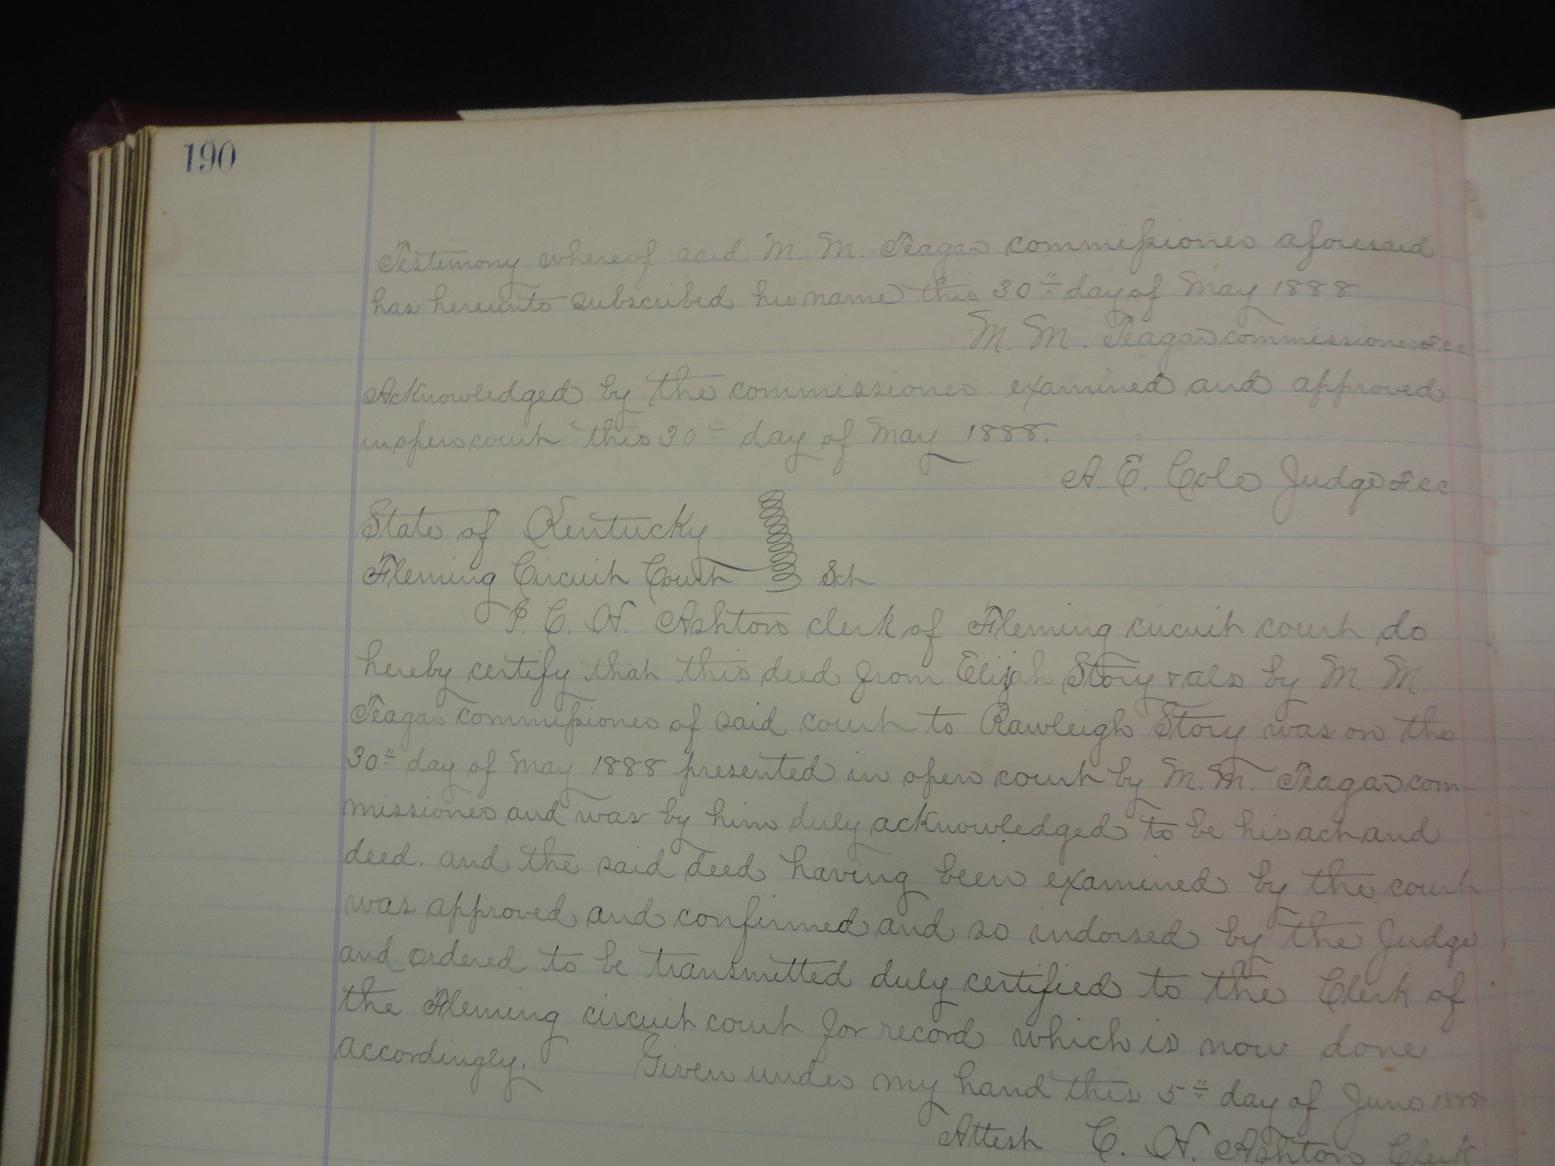 190
Testimony whereof said M. M. Teagar commissioner aforesaid
has hereunto subscribed his name this 30th day of May 1888
M. M. Teagar commissioner FCC
Acknowledged by the commissioner examined and approved
in open court this 30th day of May 1888.
A. E. Cole Judge FCC
State of Kentucky
Fleming Circuit Court Sct
I. C. N. Ashton clerk of Fleming circuit court do
hereby certify that this deed from Elijah Story &als by M. M.
Teagar commissioner of said court to Rawleigh Story was on the
30th day of May 1888 presented in open court by M. M. Teagar com-
missioner and was by him duly acknowledged to be his act and
deed. and the said deed having been examined by the court
was approved and confirmed and so indorsed by the Judge
and ordered to be transmitted duly certified to the Clerk of
the Fleming circuit court for record which is now done
accordingly. Given under my hand this 5th day of June 1888
Attest C. N. Ashton Clerk